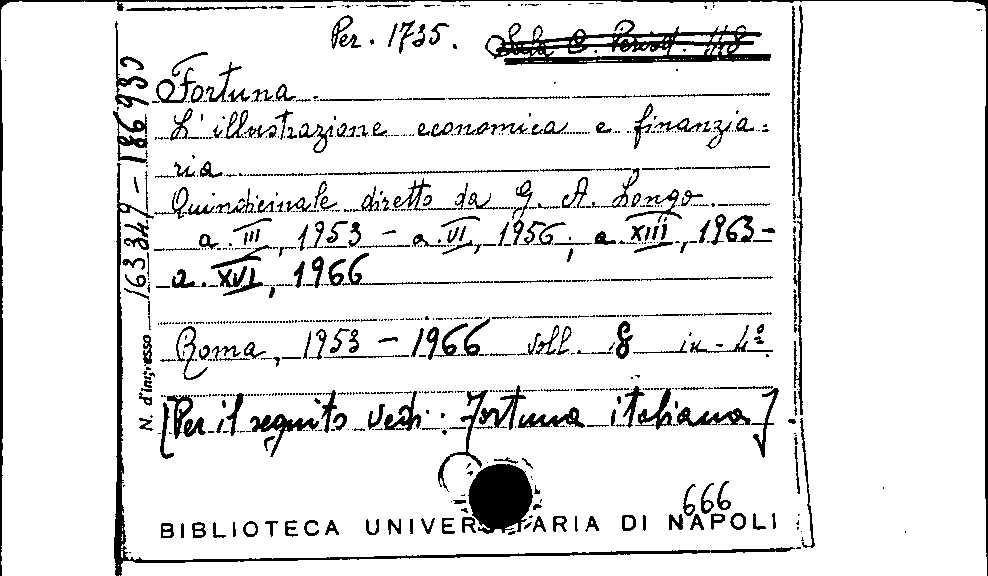 Per. 1735.
Sala C. Period. 118
Fortuna.
L'illustrazione economica e finanzia=
ria
Quindicinale diretto da G. A. Longo.
a. III, 1953 - a. VI, 1956; a. XIII, 1963-
a. XVI, 1966
Roma, 1953 - 1966 voll. 8 in-4º.
[Per il seguito vedi: Fortuna italiana].
666
BIBLIOTECA UNIVERSITARIA DI NAPOLI
N. d'ingresso 163349-186930